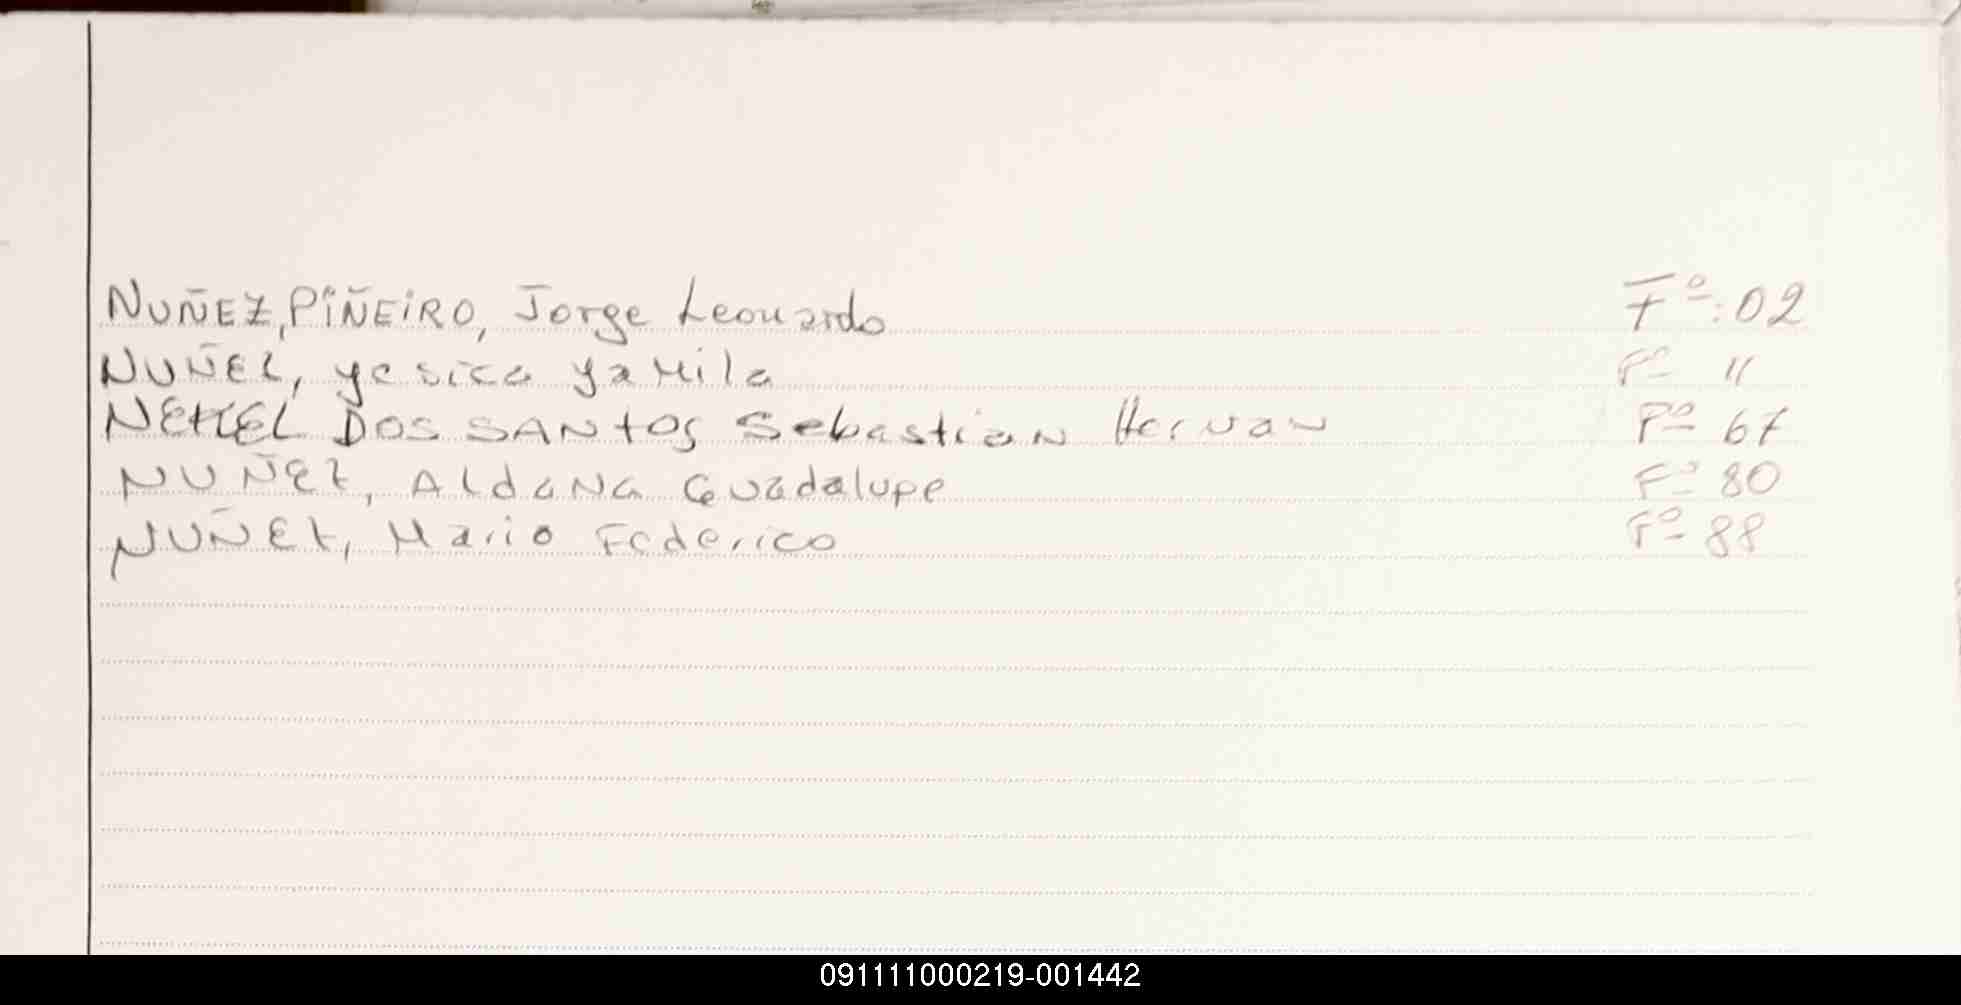 NUÑEZ, PIÑEIRO, Jorge Leonardo Fº: 02
NUÑEZ, yesica yamila Fº 11
DOS SANTOS Sebastian Hernan Fº 67
NUÑEZ, Aldana Guadalupe Fº 80
NUÑEZ, Mario Federico Fº 88
091111000219-001442